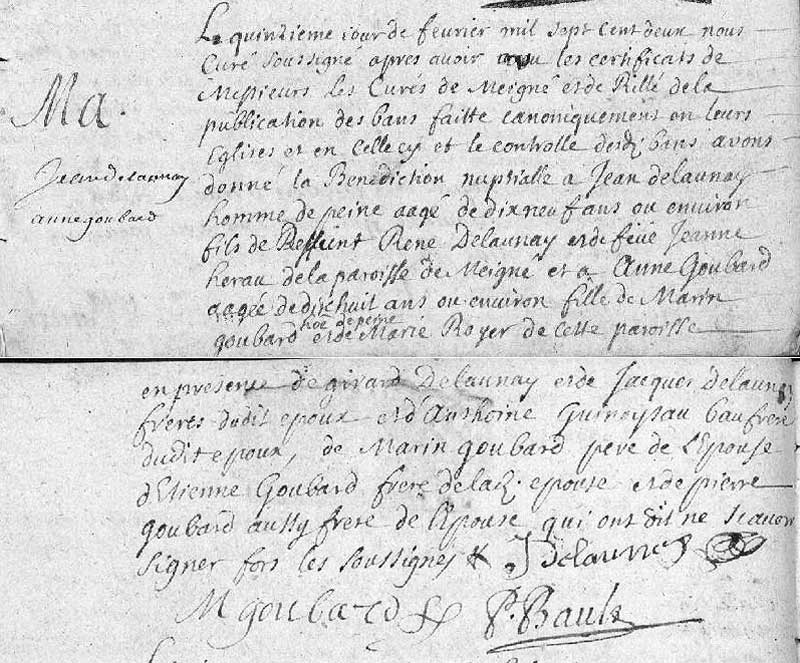 Le quinzieme iour de fevrier mil sept cent deux nous
Curé soussigné apres avoir veu les certificats de
Messieurs les Curés de Meigné et de Rillé de la
publication des bans faitte canoniquement en leurs
Eglises et en celle cy et le controlle desd. bans avons
donné la Benediction nuptialle a Jean delaunay
homme de peine aagé de dixneuf ans ou environ
fils de deffunt René Delaunay et de feüe Jeanne
herau de la paroisse de Meigné et a Anne Goubard
aagée de dixhuit ans ou environ fille de Marin
goubard hoe de peine et de Marie Royer de cette paroisse
Ma.
Jean delaunay
anne goubard
en presence de girard Delaunay et de Jacques delaunay
freres dudit epoux et d'Anthoine Guinoysau baufrere
dudit epoux, de Marin goubard pere de l'Epouse
d'Etienne Goubard frere de lad. epouse et de pierre
goubard aussy frere de l'epouse qui ont dit ne scavoir
signer fors les soussignes J Delaunay
M goubard P. Bault